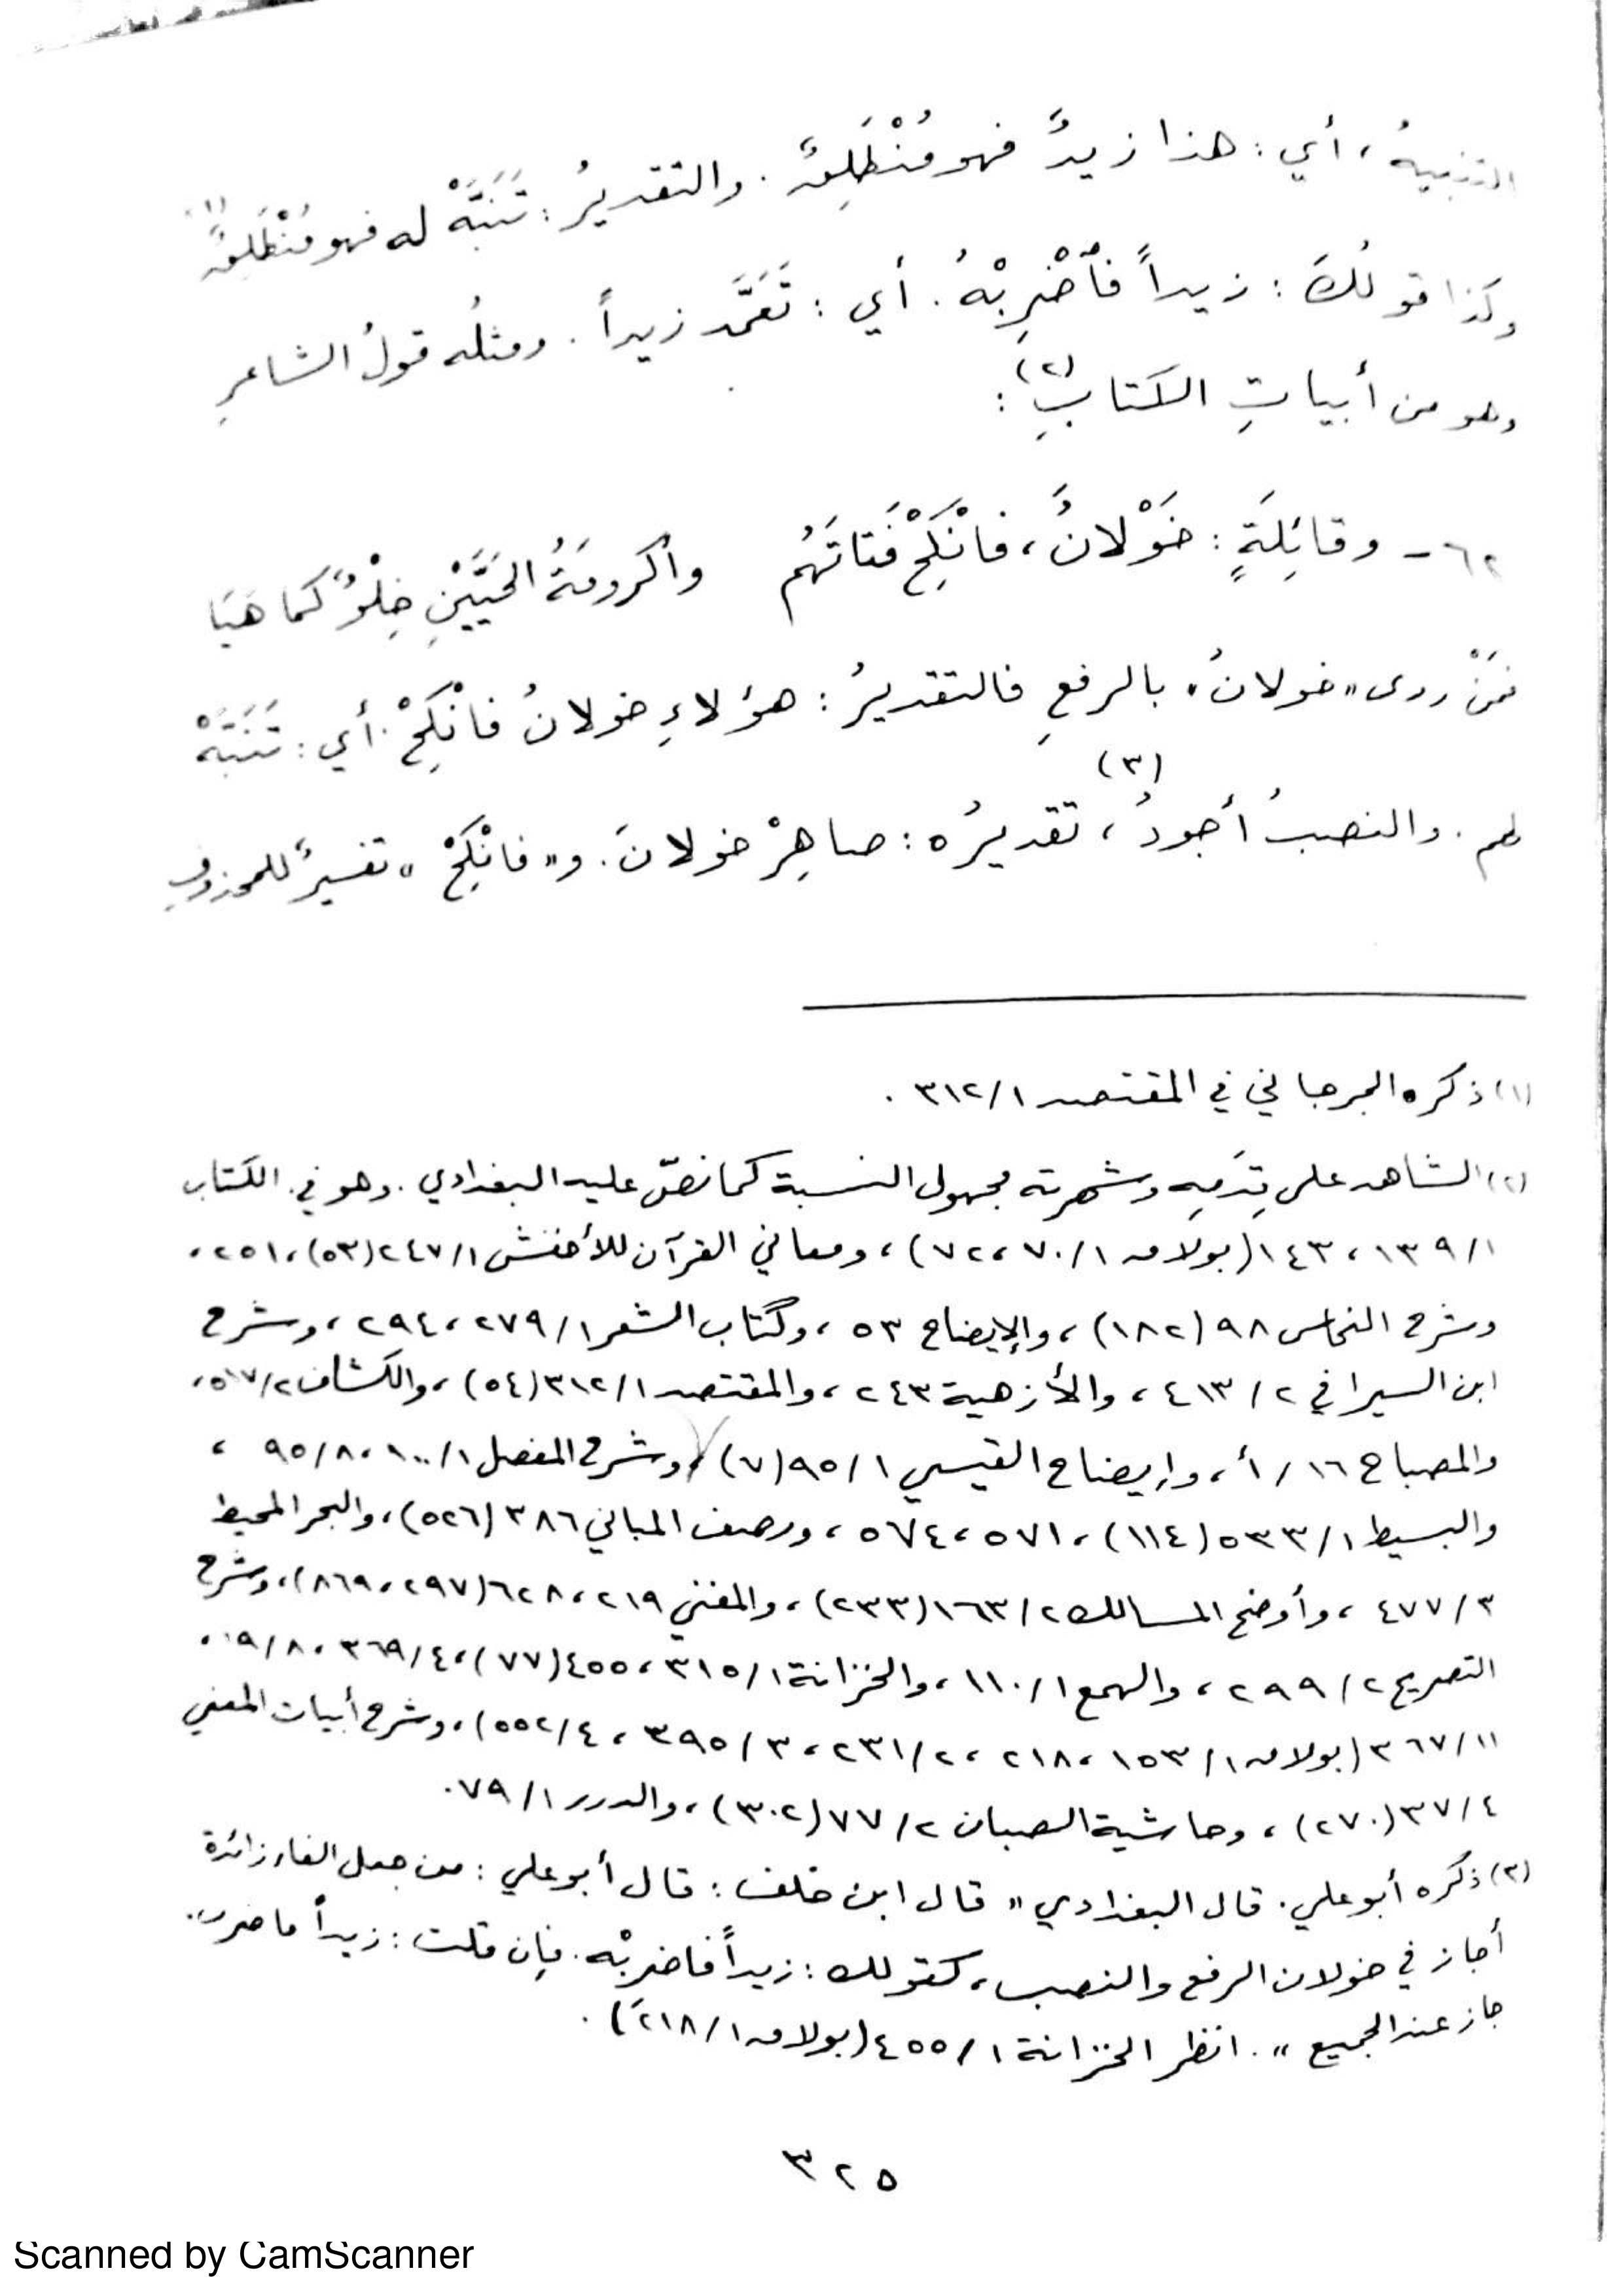 التنبيهُ ، أي : هذا زيدٌ فهو مُنْطَلِقٌ . والتقديرُ : تَنَبَّهْ له فهو مُنْطَلِقٌ (١)
وكذا قولُكَ : زيداً فاُضْرِبْهُ . أي : تَعَمَّد زيداً . ومثلُه قولُ الشاعرِ
وهو من أبياتِ الكَتابِ (٢) :
٦٢ – وقائِلَةٍ : خَوْلانُ ، فانْكِحْ فَتاتَهُم   وأكرومَةُ الحَيَّيْنِ خِلْوٌ كما هَيَا
فمَنْ روى «خولانُ» بالرفعِ فالتقديرُ : هؤلاءِ خولانُ فانْكِحْ . أي : تَنَبَّهْ
لهم . والنصبُ أجودُ (٣) ، تقديرُه : صاهِرْ خولانَ . و« فانْكِحْ » تفسيرٌ للمحذوفِ
(١) ذكره الجرجاني في المقتصد ٣١٢/١ .
(٢) الشاهد على قِدَمِهِ وشهرته مجهول النسبة كما نصّ عليه البغدادي . وهو في الكتاب
١٣٩/١ ، ١٤٣ (بولاق ٧٠/١ ، ٧٢) ، ومعاني القرآن للأخفش ٢٤٧/١ (٥٣) ، ٢٥١ ،
وشرح النحاس ٩٨ (١٨٢) ، والإيضاح ٥٣ ، وكتاب الشعر ٢٧٩/١ ، ٢٩٤ ، وشرح
ابن السيرافي ٤١٣/٢ ، والأزهية ٢٤٣ ، والمقتصد ٣١٢/١ (٥٤) ، والكشاف ٥١٧/٢ ،
والمصباح ١٦/أ ، وإيضاح القيسي ٩٥/١ (٧) ، وشرح المفصل ١٠٠/١ ، ٩٥/٨ ،
والبسيط ٥٣٣/١ (١١٤) ، ٥٧١ ، ٥٧٤ ، ورصف المباني ٣٨٦ (٥٢٦) ، والبحر المحيط
٤٧٧/٣ ، وأوضح المسالك ١٦٣/٢ (٢٣٣) ، والمغني ٢١٩ ، ٦٢٨ (٢٩٧ ، ٨٦٩) ، وشرح
التصريح ٢٩٩/٢ ، والهمع ١١٠/١ ، والخزانة ٣١٥/١ ، ٤٥٥ (٧٧) ، ٣٦٩/٤ ، ١٩/٨ ،
٣٦٧/١١ (بولاق ١٥٣/١ ، ٢١٨ ، ٢٣١/٢ ، ٣٩٥/٣ ، ٥٥٢/٤) ، وشرح أبيات المغني
٣٧/٤ (٢٧٠) ، وحاشية الصبان ٧٧/٢ (٣٠٢) ، والدرر ٧٩/١ .
(٣) ذكره أبو علي . قال البغدادي « قال ابن خلف : قال أبو علي : من جعل الفاء زائدة
أجاز في خولان الرفع والنصب ، كقولك : زيداً فاضربْه . فإن قلت : زيداً فاضرب
جاز عند الجميع » . انظر الخزانة ٤٥٥/١ (بولاق ٢١٨/١) .
٣٢٥
Scanned by CamScanner